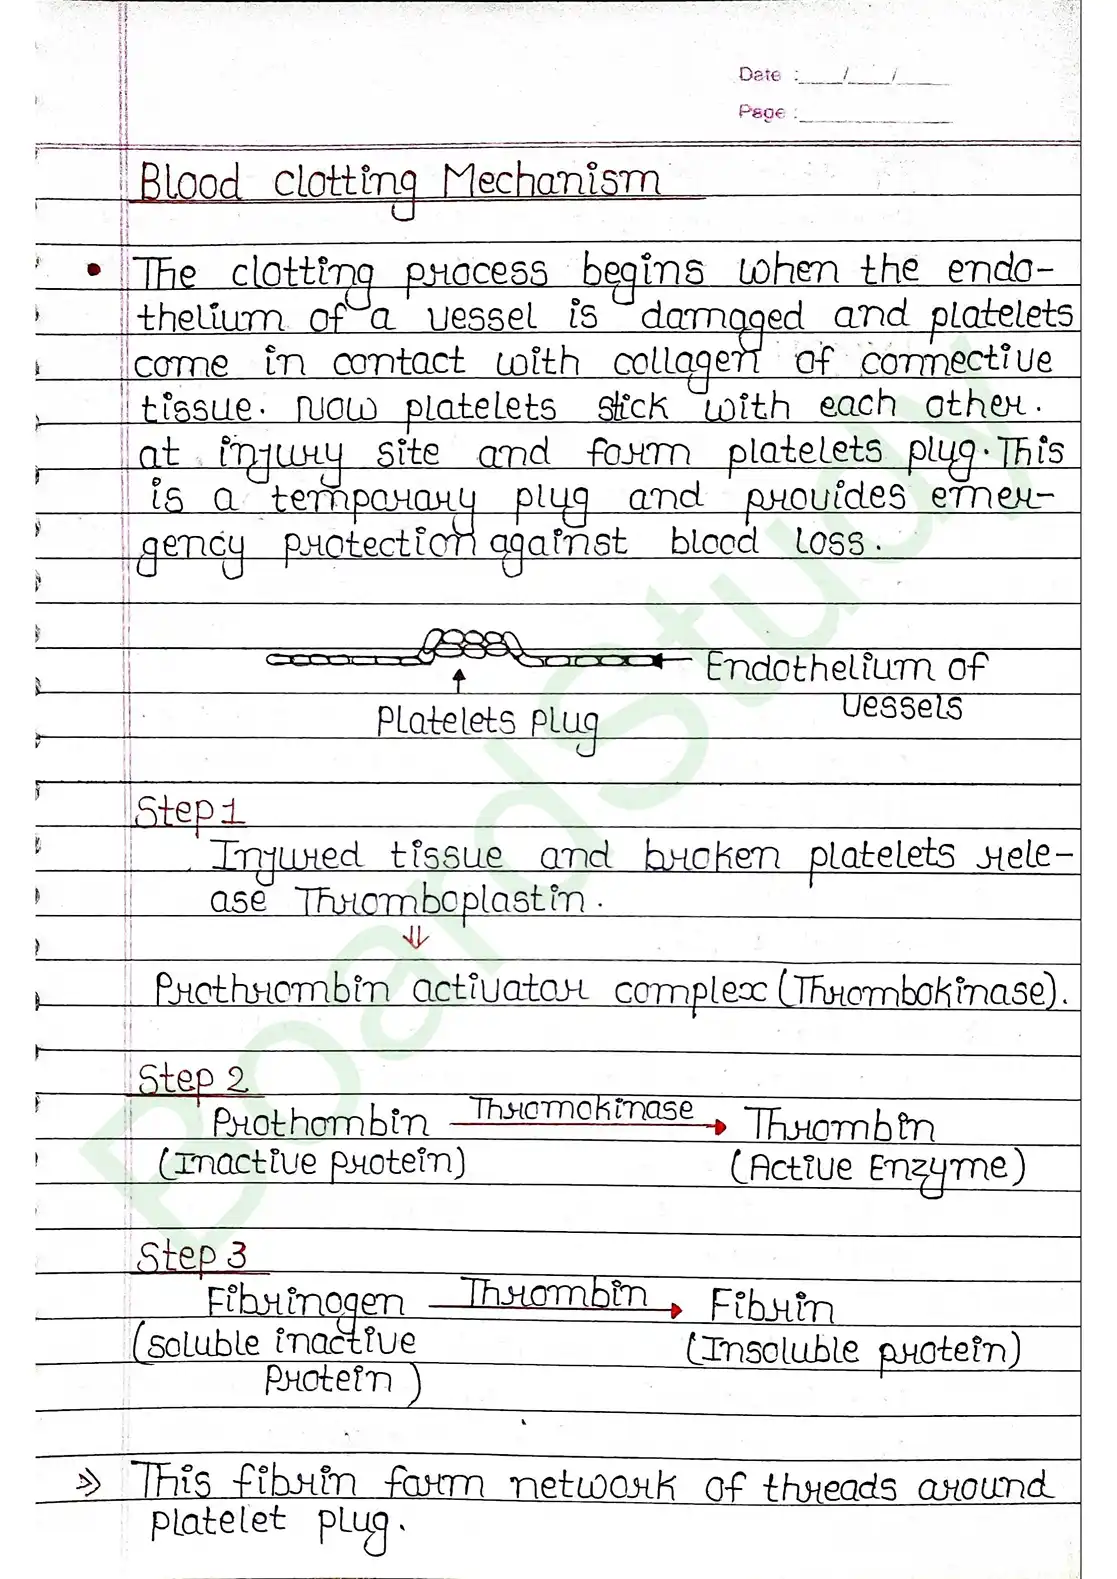 Date : __/__/__
Page :
Blood clotting Mechanism
• The clotting process begins when the endo-
thelium of a vessel is damaged and platelets
come in contact with collagen of connective
tissue. Now platelets stick with each other.
at injury site and form platelets plug. This
is a temporary plug and provides emer-
gency protection against blood loss.
Endothelium of
vessels
Platelets plug
Step 1
Injured tissue and broken platelets rele-
ase Thromboplastin.
⇓
Prothrombin activator complex (Thrombokinase).
Step 2
Prothombin Thromokinase → Thrombin
(Inactive protein) (Active Enzyme)
Step 3
Fibrinogen Thrombin → Fibrin
(soluble inactive (Insoluble protein)
protein)
⇒ This fibrin form network of threads around
platelet plug.
BoardStudy